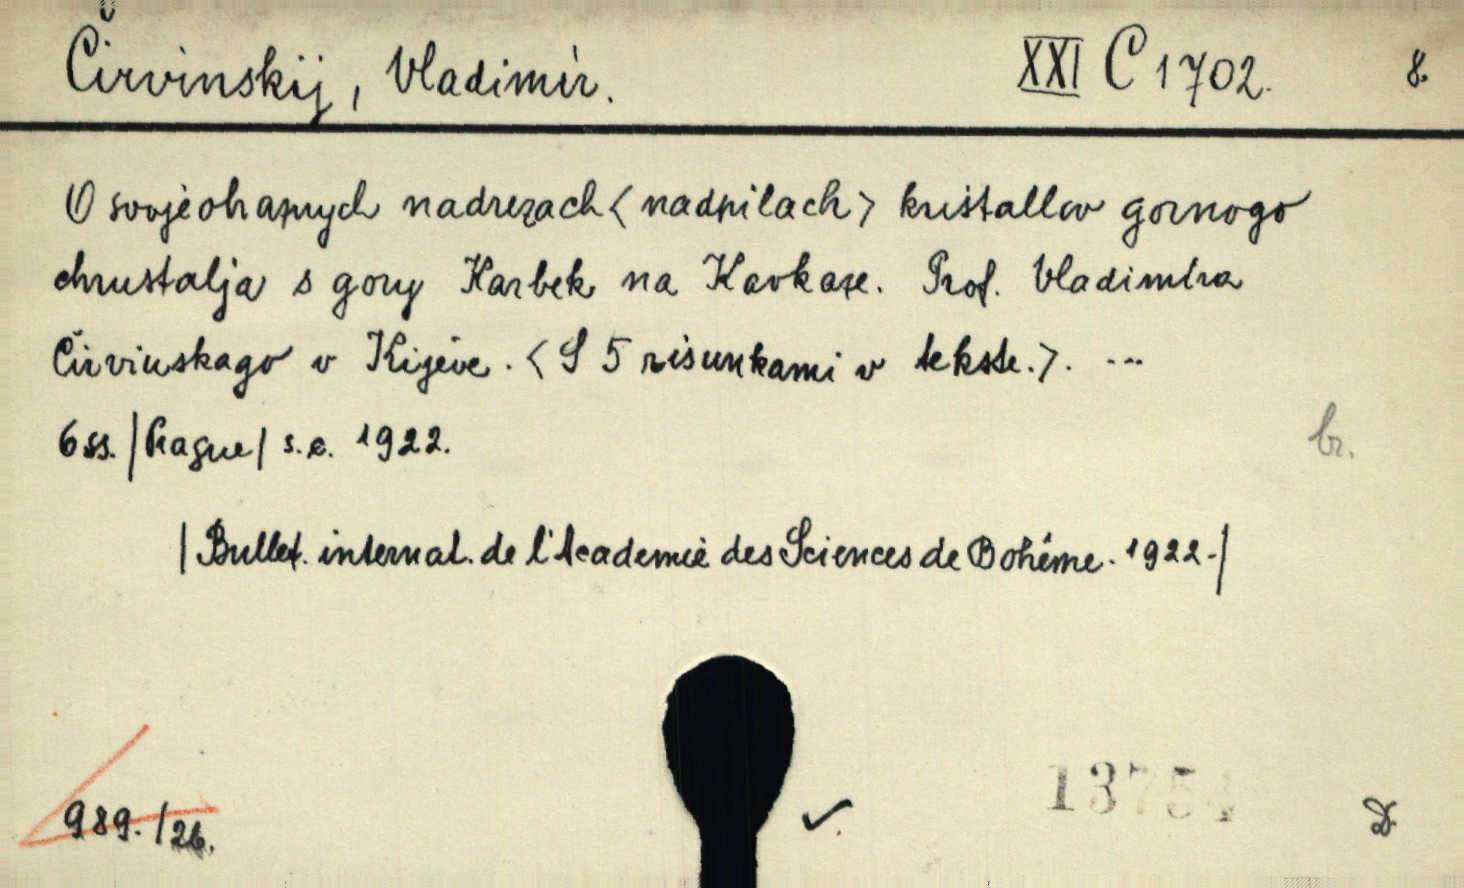 Čirvinskij, Vladimir. XXI C 1702. 8.
O svojeobraznych nadrezach <nadpilach> kristallov gornogo
chrustalja s gory Kazbek na Kavkaze. Prof. Vladimira
Čirvinskago v Kijeve. <S 5 risunkami v tekste.>. ...
6 ss. |Prague| s. e. 1922.
br.
|Bullet. internat. de l'Academie des Sciences de Bohême. 1922.|
989./26.
13754
D.